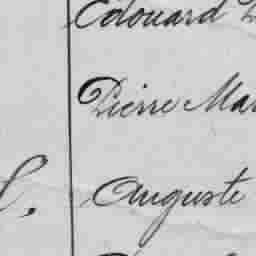 Edouard
Pierre Ma
Auguste